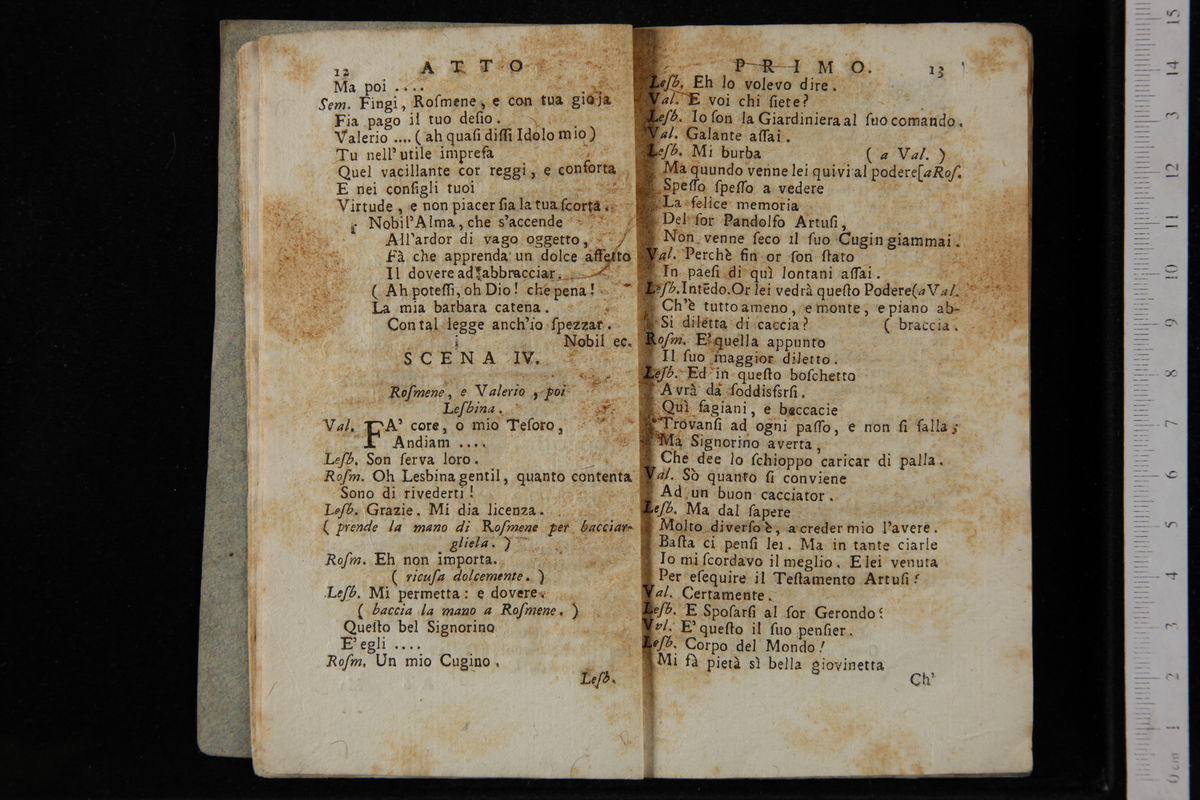 12 ATTO
Ma poi ....
Sem. Fingi, Roſmene, e con tua gioja
Fia pago il tuo deſio.
Valerio .... (ah quaſi diſſi Idolo mio)
Tu nell' utile impreſa
Quel vacillante cor reggi, e conforta
E nei conſigli tuoi
Virtude, e non piacer ſia la tua ſcorta.
Nobil'Alma, che s'accende
All'ardor di vago oggetto,
Fà che apprenda un dolce affetto
Il dovere ad abbracciar.
(Ah poteſſi, oh Dio! che pena!
La mia barbara catena.
Con tal legge anch'io ſpezzar.
Nobil ec.
SCENA IV.
Roſmene, e Valerio, poi
Lesbina.
Val. FA' core, o mio Teſoro,
Andiam ....
Leſb. Son ſerva loro.
Roſm. Oh Lesbina gentil, quanto contenta
Sono di rivederti!
Leſb. Grazie. Mi dia licenza.
(prende la mano di Roſmene per bacciar-
gliela.)
Roſm. Eh non importa.
(ricuſa dolcemente.)
Leſb. Mi permetta: e dovere.
(baccia la mano a Roſmene.)
Queſto bel Signorino
E' egli ....
Roſm. Un mio Cugino.
Leſb.
PRIMO. 13
Leſb. Eh lo volevo dire.
Val. E voi chi ſiete?
Leſb. Io ſon la Giardiniera al ſuo comando.
Val. Galante aſſai.
Leſb. Mi burba (a Val.)
Ma quundo venne lei quivi al podere[a Roſ.
Speſſo ſpeſſo a vedere
La felice memoria
Del ſor Pandolfo Artuſi,
Non venne ſeco il ſuo Cugin giammai.
Val. Perchè fin or ſon ſtato
In paeſi di quì lontani aſſai.
Leſb. Intẽdo. Or lei vedrà queſto Podere(a Val.
Ch'è tutto ameno, e monte, e piano ab-
Si diletta di caccia? (braccia.
Roſm. E' quella appunto
Il ſuo maggior diletto.
Leſb. Ed in queſto boſchetto
Avrà da ſoddisfsrſi.
Quì fagiani, e beccacie
Trovanſi ad ogni paſſo, e non ſi falla;
Ma Signorino averta,
Che dee lo ſchioppo caricar di palla.
Val. Sò quanto ſi conviene
Ad un buon cacciator.
Leſb. Ma dal ſapere
Molto diverſo è, a creder mio l'avere.
Baſta ci penſi lei. Ma in tante ciarle
Io mi ſcordavo il meglio. E lei venuta
Per eſequire il Teſtamento Artuſi?
Val. Certamente.
Leſb. E Spoſarſi al ſor Gerondo?
Vvl. E' queſto il ſuo penſier.
Leſb. Corpo del Mondo!
Mi fà pietà sì bella giovinetta
Ch'